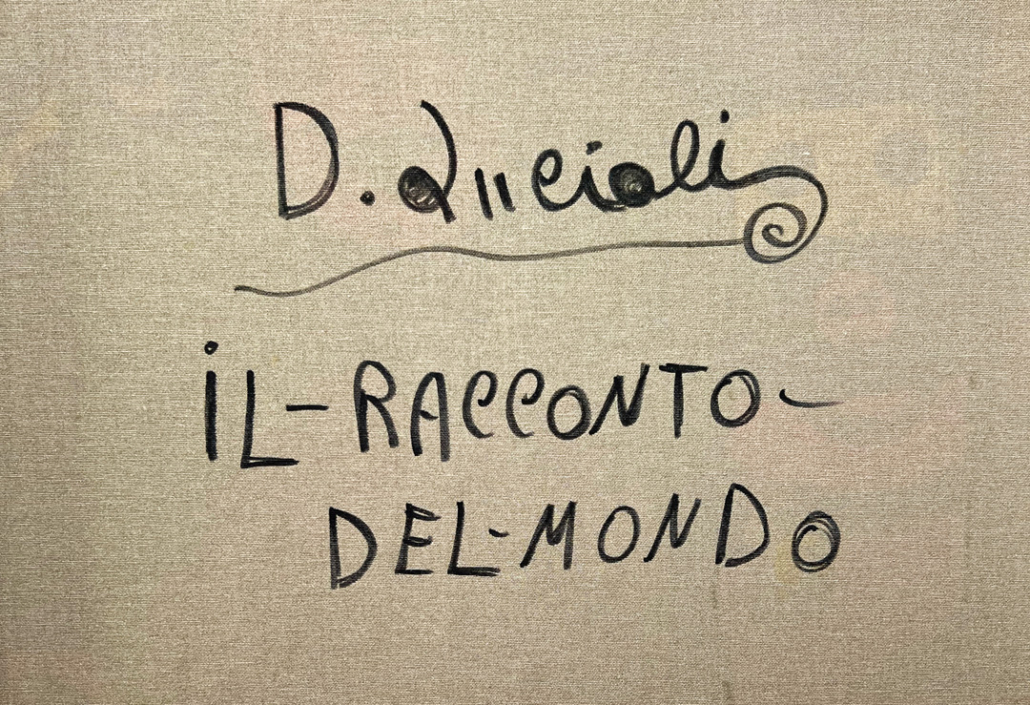 D.
iL-RACCONTO-
DEL-MONDO